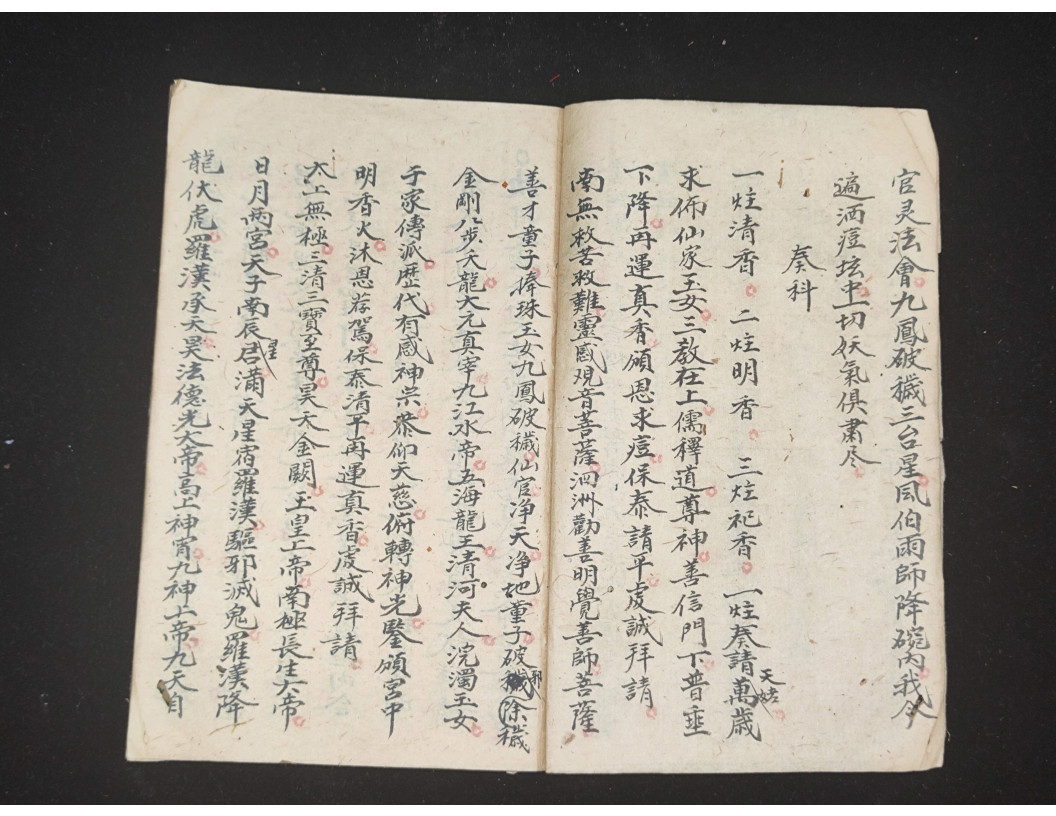 官灵法會九鳳破穢三台星風伯雨師降碗内我今
遍洒痘坛中一切妖氣俱肅尽
奏科
一炷清香 二炷明香 三炷祀香 一炷奏請萬歲
天娃
求佈仙家玉女三教在上儒釋道尊神善信門下普垂
下降再運真香頒恩求痘保泰請平虔誠拜請
南無救苦救難靈感观音菩薩泗洲勸善明覺善師菩薩
善才童子捧珠玉女九鳳破穢仙官净天净地童子破穢除穢
邪
金剛八步天龍大元真宰九江水帝五海龍王清河夫人浣濁玉女
于家傳派歴代有感神宗恭仰天慈俯轉神光鑒頒宮中
明香火沐恩荐駕保泰清平再運真香虔誠拜請
太上無極三清三寶至尊昊天金闕玉皇上帝南極長生大帝
日月两宮天子南辰星君滿天星宿羅漢驅邪滅鬼羅漢降
龍伏虎羅漢承天昊法德光大帝高上神宵九神上帝九天自